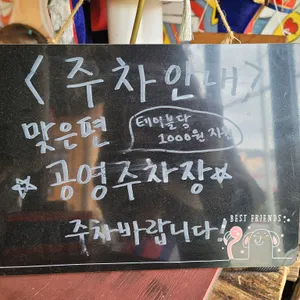 <주차안내>
맞은편
테이블당
1000원 지원
☆공영주차장☆
주차바랍니다!
BEST FRIENDS